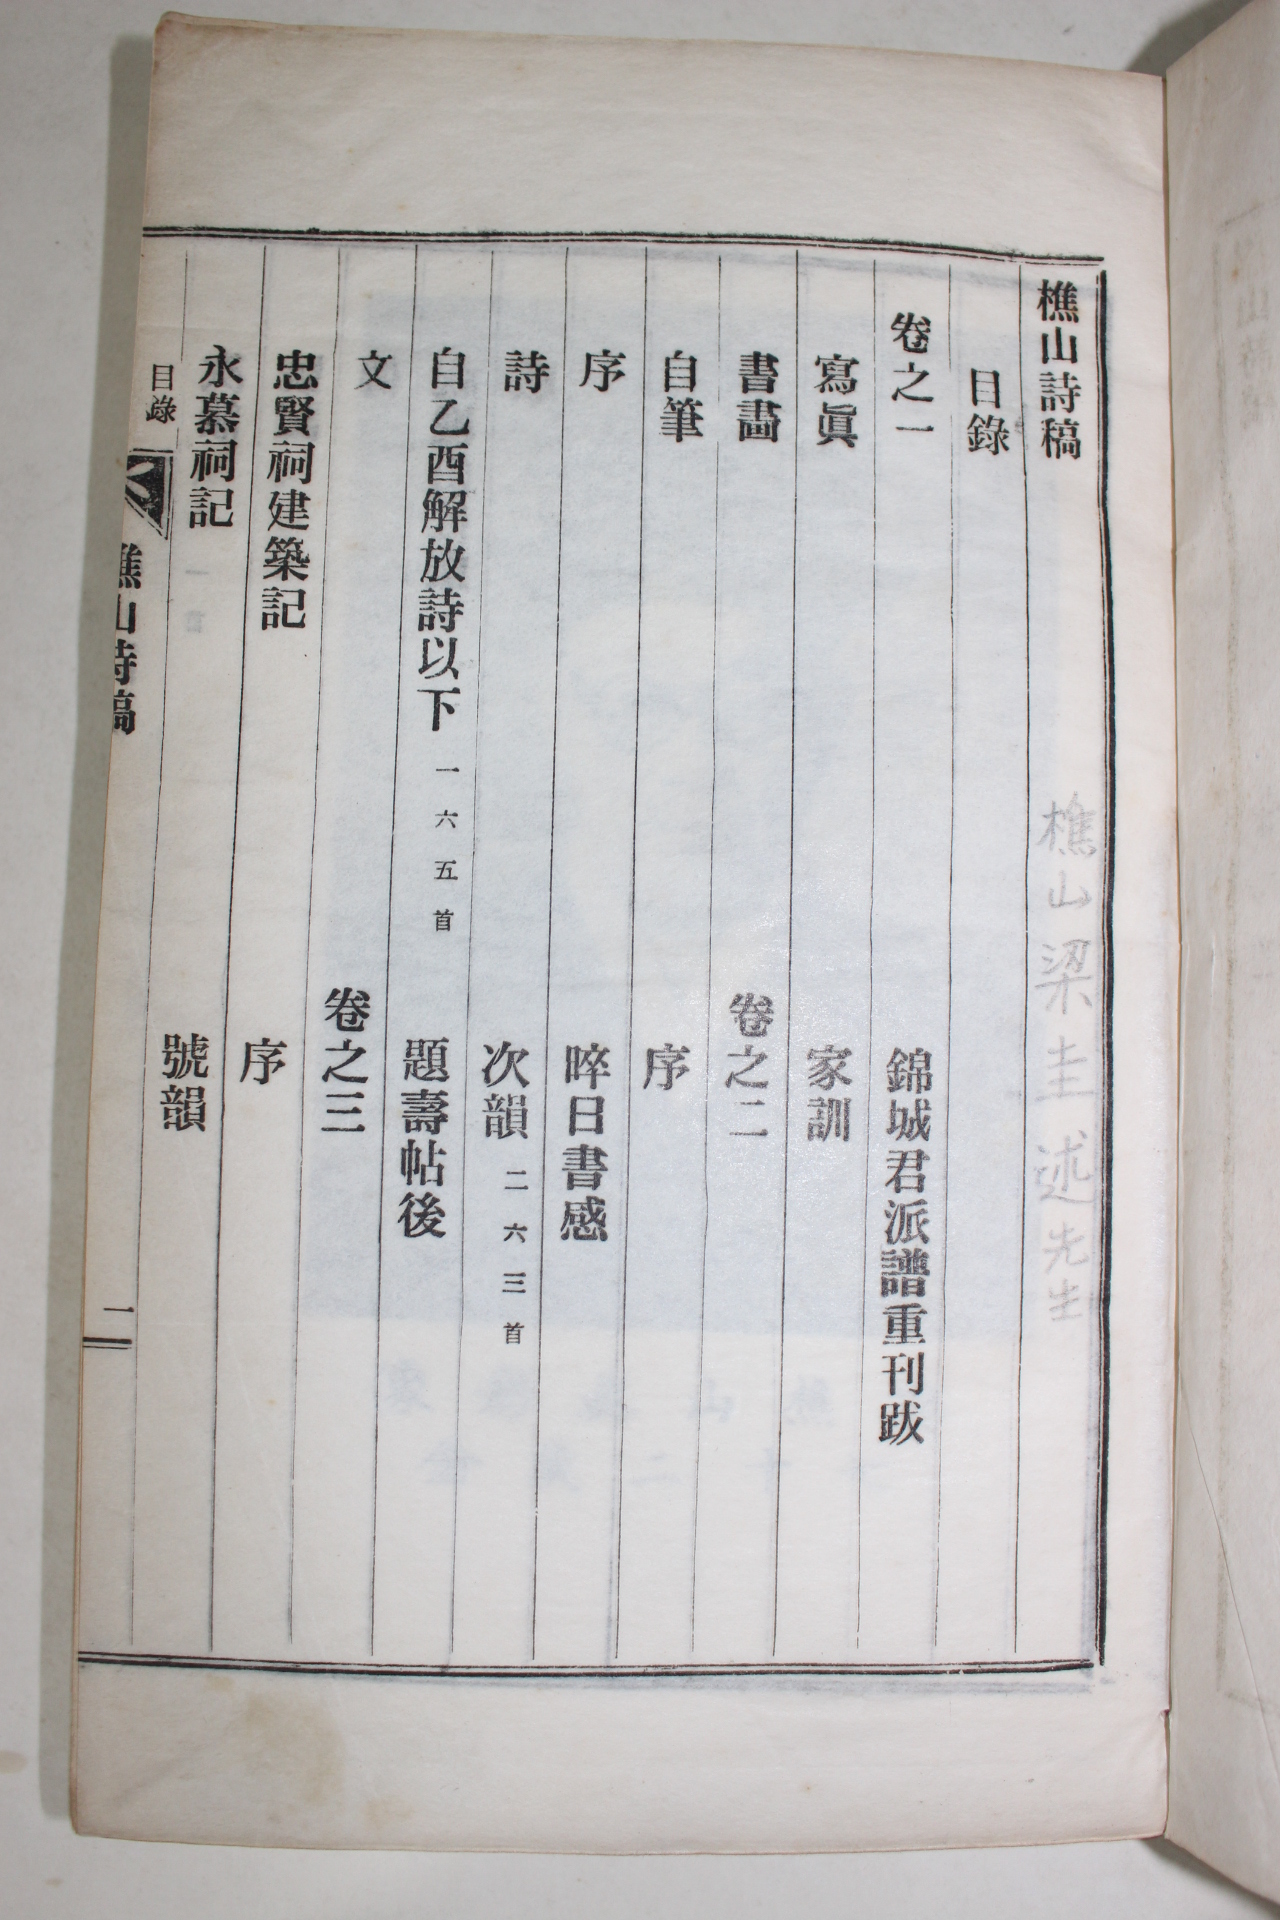 樵山詩稿
樵山梁圭述先生
目錄
卷之一
寫眞
書畵
自筆
序
詩
自乙酉解放詩以下 一六五首
文
忠賢祠建築記
永慕祠記
錦城君派譜重刊跋
家訓
卷之二
序
晬日書感
次韻 二六三首
題壽帖後
卷之三
序
號韻
目錄
樵山詩稿
一